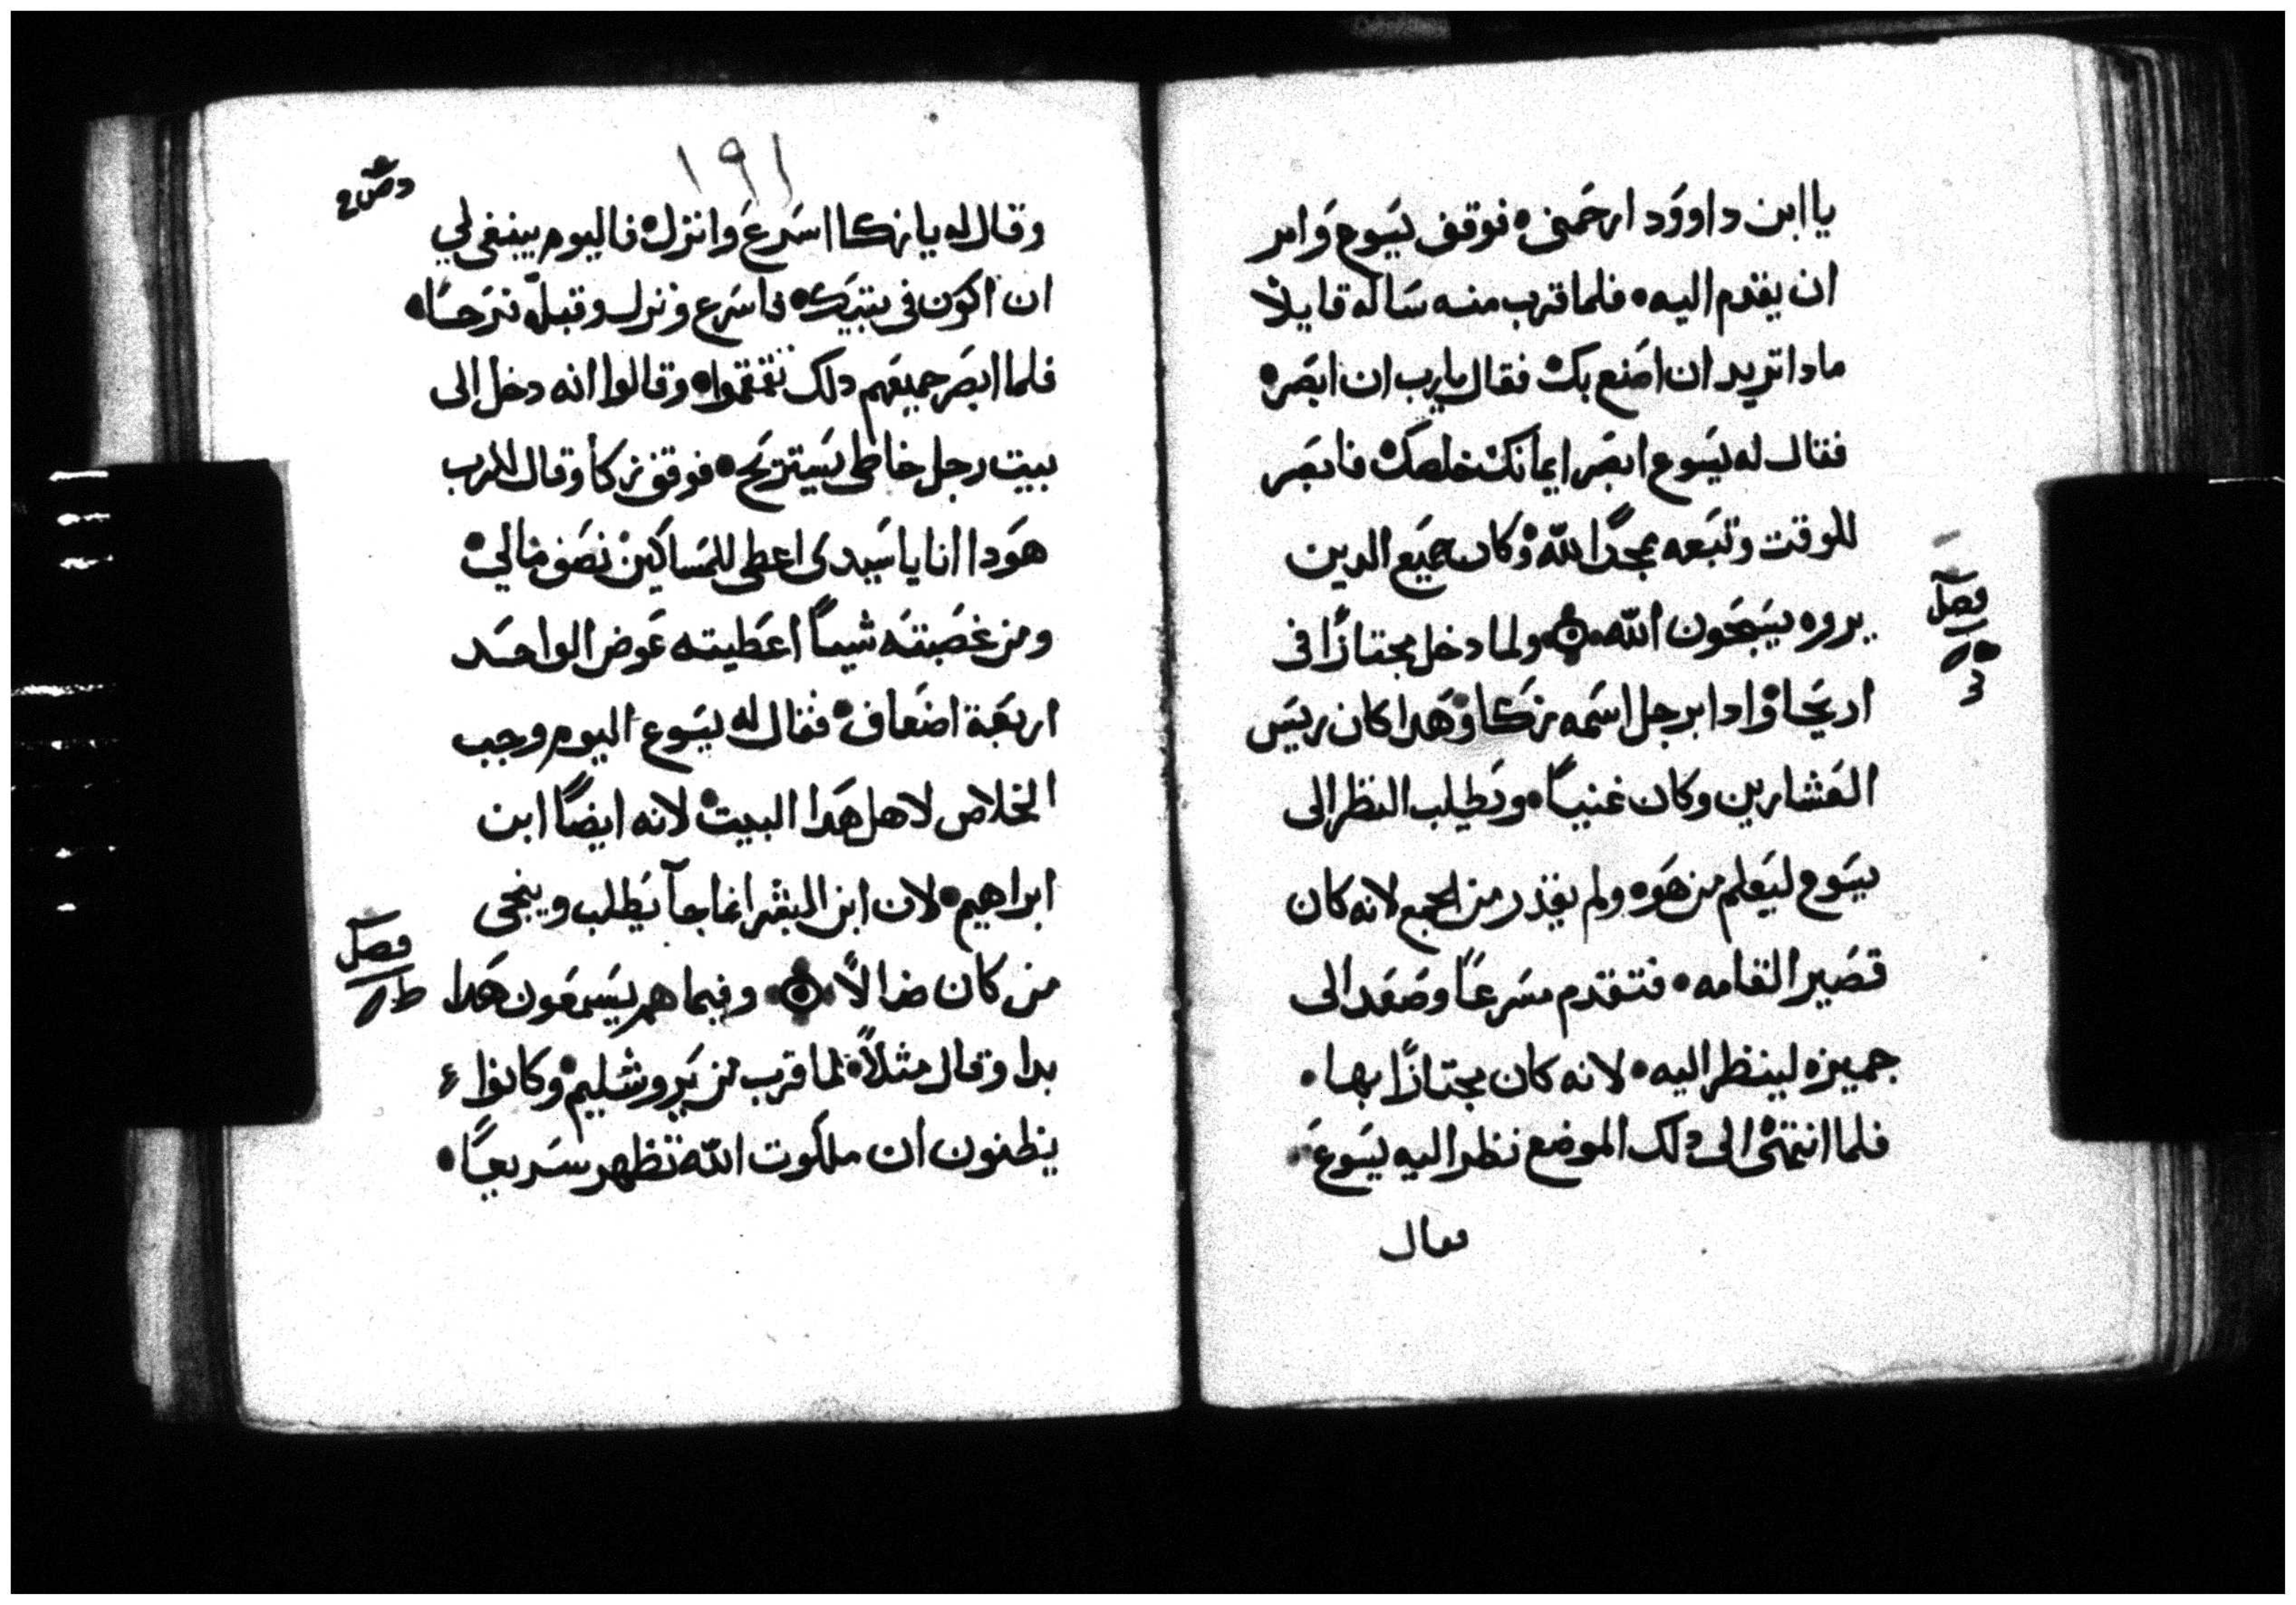 يا ابن داوود ارحمنى فوقف يسوع وامر
ان يقدم اليه فلما قرب منه ساله قايلا
مادا تريد ان اصنع بك فقال يارب ان ابصر
فقال له يسوع ابصر ايمانك خلصك فابصر
للوقت وتبعه ممجدًا لله وكان جميع الدين
يروه يسبحون الله ولما دخل مجتازًا فى
اريحا وادا برجل اسمه زكا وهدا كان رييس
العشارين وكان غنيًا وبطلب النظر الى
يسوع ليعلم من هوه ولم يقدر من الجمع لانه كان
قصير القامه فتقدم مسرعًا وصعد الى
جميزه لينظر اليه لانه كان مجتازًا بها
فلما انتهى الى دلك الموضع نظر اليه يسوع
فقال
فصل
١٩١
وقال له يا زكا اسرع وانزل فاليوم ينبغى لي
ان اكون فى بيتك فاسرع ونزل وقبله فرحًا
فلما ابصر جميعهم دلك تقمقموا وقالوا انه دخل الى
بيت رجل خاطى يستريح فوقف زكا وقال للرب
هودا انا يا سيدى اعطى للمساكين نصف مالي
ومن غصبته شيًا اعطيته عوض الواحد
اربعة اضعاف فقال له يسوع اليوم وجب
الخلاص لاهل هدا البيت لانه ايضًا ابن
ابراهيم لان ابن البشر انما جآ يطلب وينجى
من كان ضالًا وفيما هم يسمعون هدا
بدا وقال مثلًا لما قرب من يروشليم وكانوا
يظنون ان ملكوت الله تظهر سريعًا
فصل